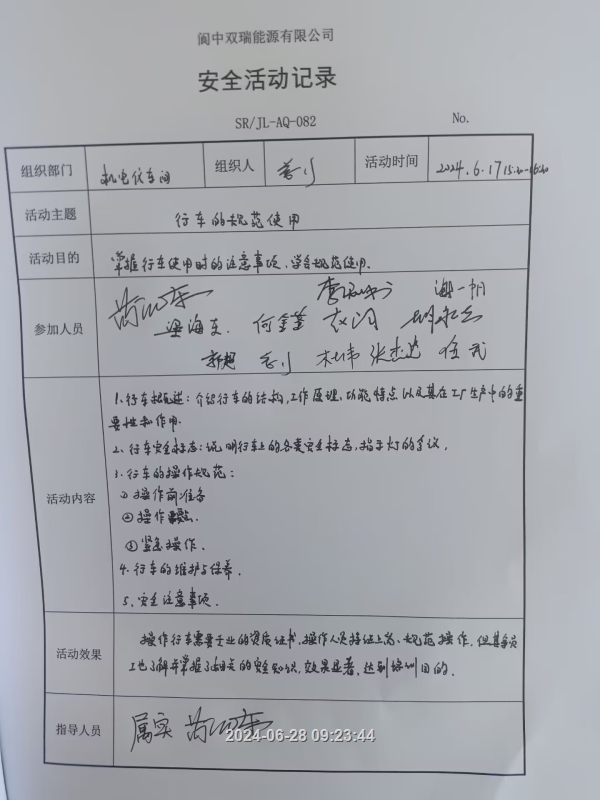 阆中双瑞能源有限公司
安全活动记录
SR/JL-AQ-082 No.
组织部门 机电仪车间 组织人 活动时间 2024.6.17 15:20-16:20
活动主题 行车的规范使用
活动目的 掌握行车使用时的注意事项，学会规范使用.
参加人员
梁海东. 何金奎
郭超 杜伟 张杰 任武
活动内容
1.行车概述：介绍行车的结构,工作原理、功能特点以及其在工厂生产中的重
要性和作用.
2、行车安全标志：说明行车上的各类安全标志，指示灯的含义.
3.行车的操作规范：
①操作前准备
②操作
③紧急操作.
4.行车的维护与保养.
5、安全注意事项.
活动效果
操作行车需要专业的资质证书，操作人员持证上岗、规范操作，但其余员
工也了解并掌握了相关的安全知识，效果显著，达到培训目的.
指导人员 属实
2024-06-28 09:23:44